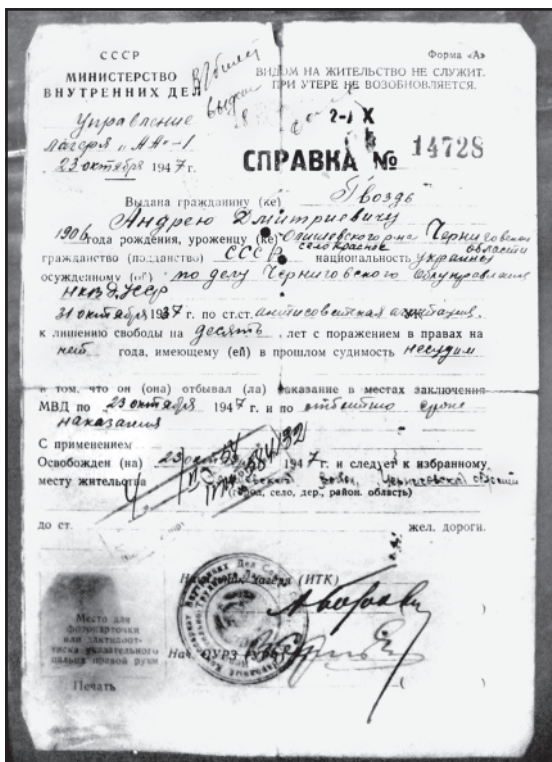 СССР
МИНИСТЕРСТВО
ВНУТРЕННИХ ДЕЛ
Управление
лагеря "АА"-1
23 октября 1947 г.
Форма «А»
ВИДОМ НА ЖИТЕЛЬСТВО НЕ СЛУЖИТ.
ПРИ УТЕРЕ НЕ ВОЗОБНОВЛЯЕТСЯ.
выдан
X
СПРАВКА № 14728
Выдана гражданину (ке) Гвоздь
Андрею Дмитриевичу
1906 года рождения, уроженцу (ке) р-на Черниговской
село Красное области
гражданство (подданство) СССР национальность украинец
осужденному (ой) по делу Черниговского Облуправления
НКВД УССР
31 октября 1937 г. по ст.ст. антисоветская агитация,
к лишению свободы на десять лет с поражением в правах на
нет года, имеющему (ей) в прошлом судимость несудим
в том, что он (она) отбывал (ла) наказание в местах заключения
МВД по 23 октября 1947 г. и по отбытию срока
наказания
С применением
Освобожден (на) 23 1947 г. и следует к избранному
месту жительства Черниговской
(город, село, дер., район, область)
до ст. жел. дороги.
Начальник лагеря (ИТК)
Место для
фотокарточки
или дактилот-
тиска указательного
пальца правой руки
Нач. ОУРЗ (УРЧ)
Печать
( )